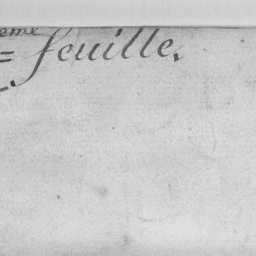 eme feuille.